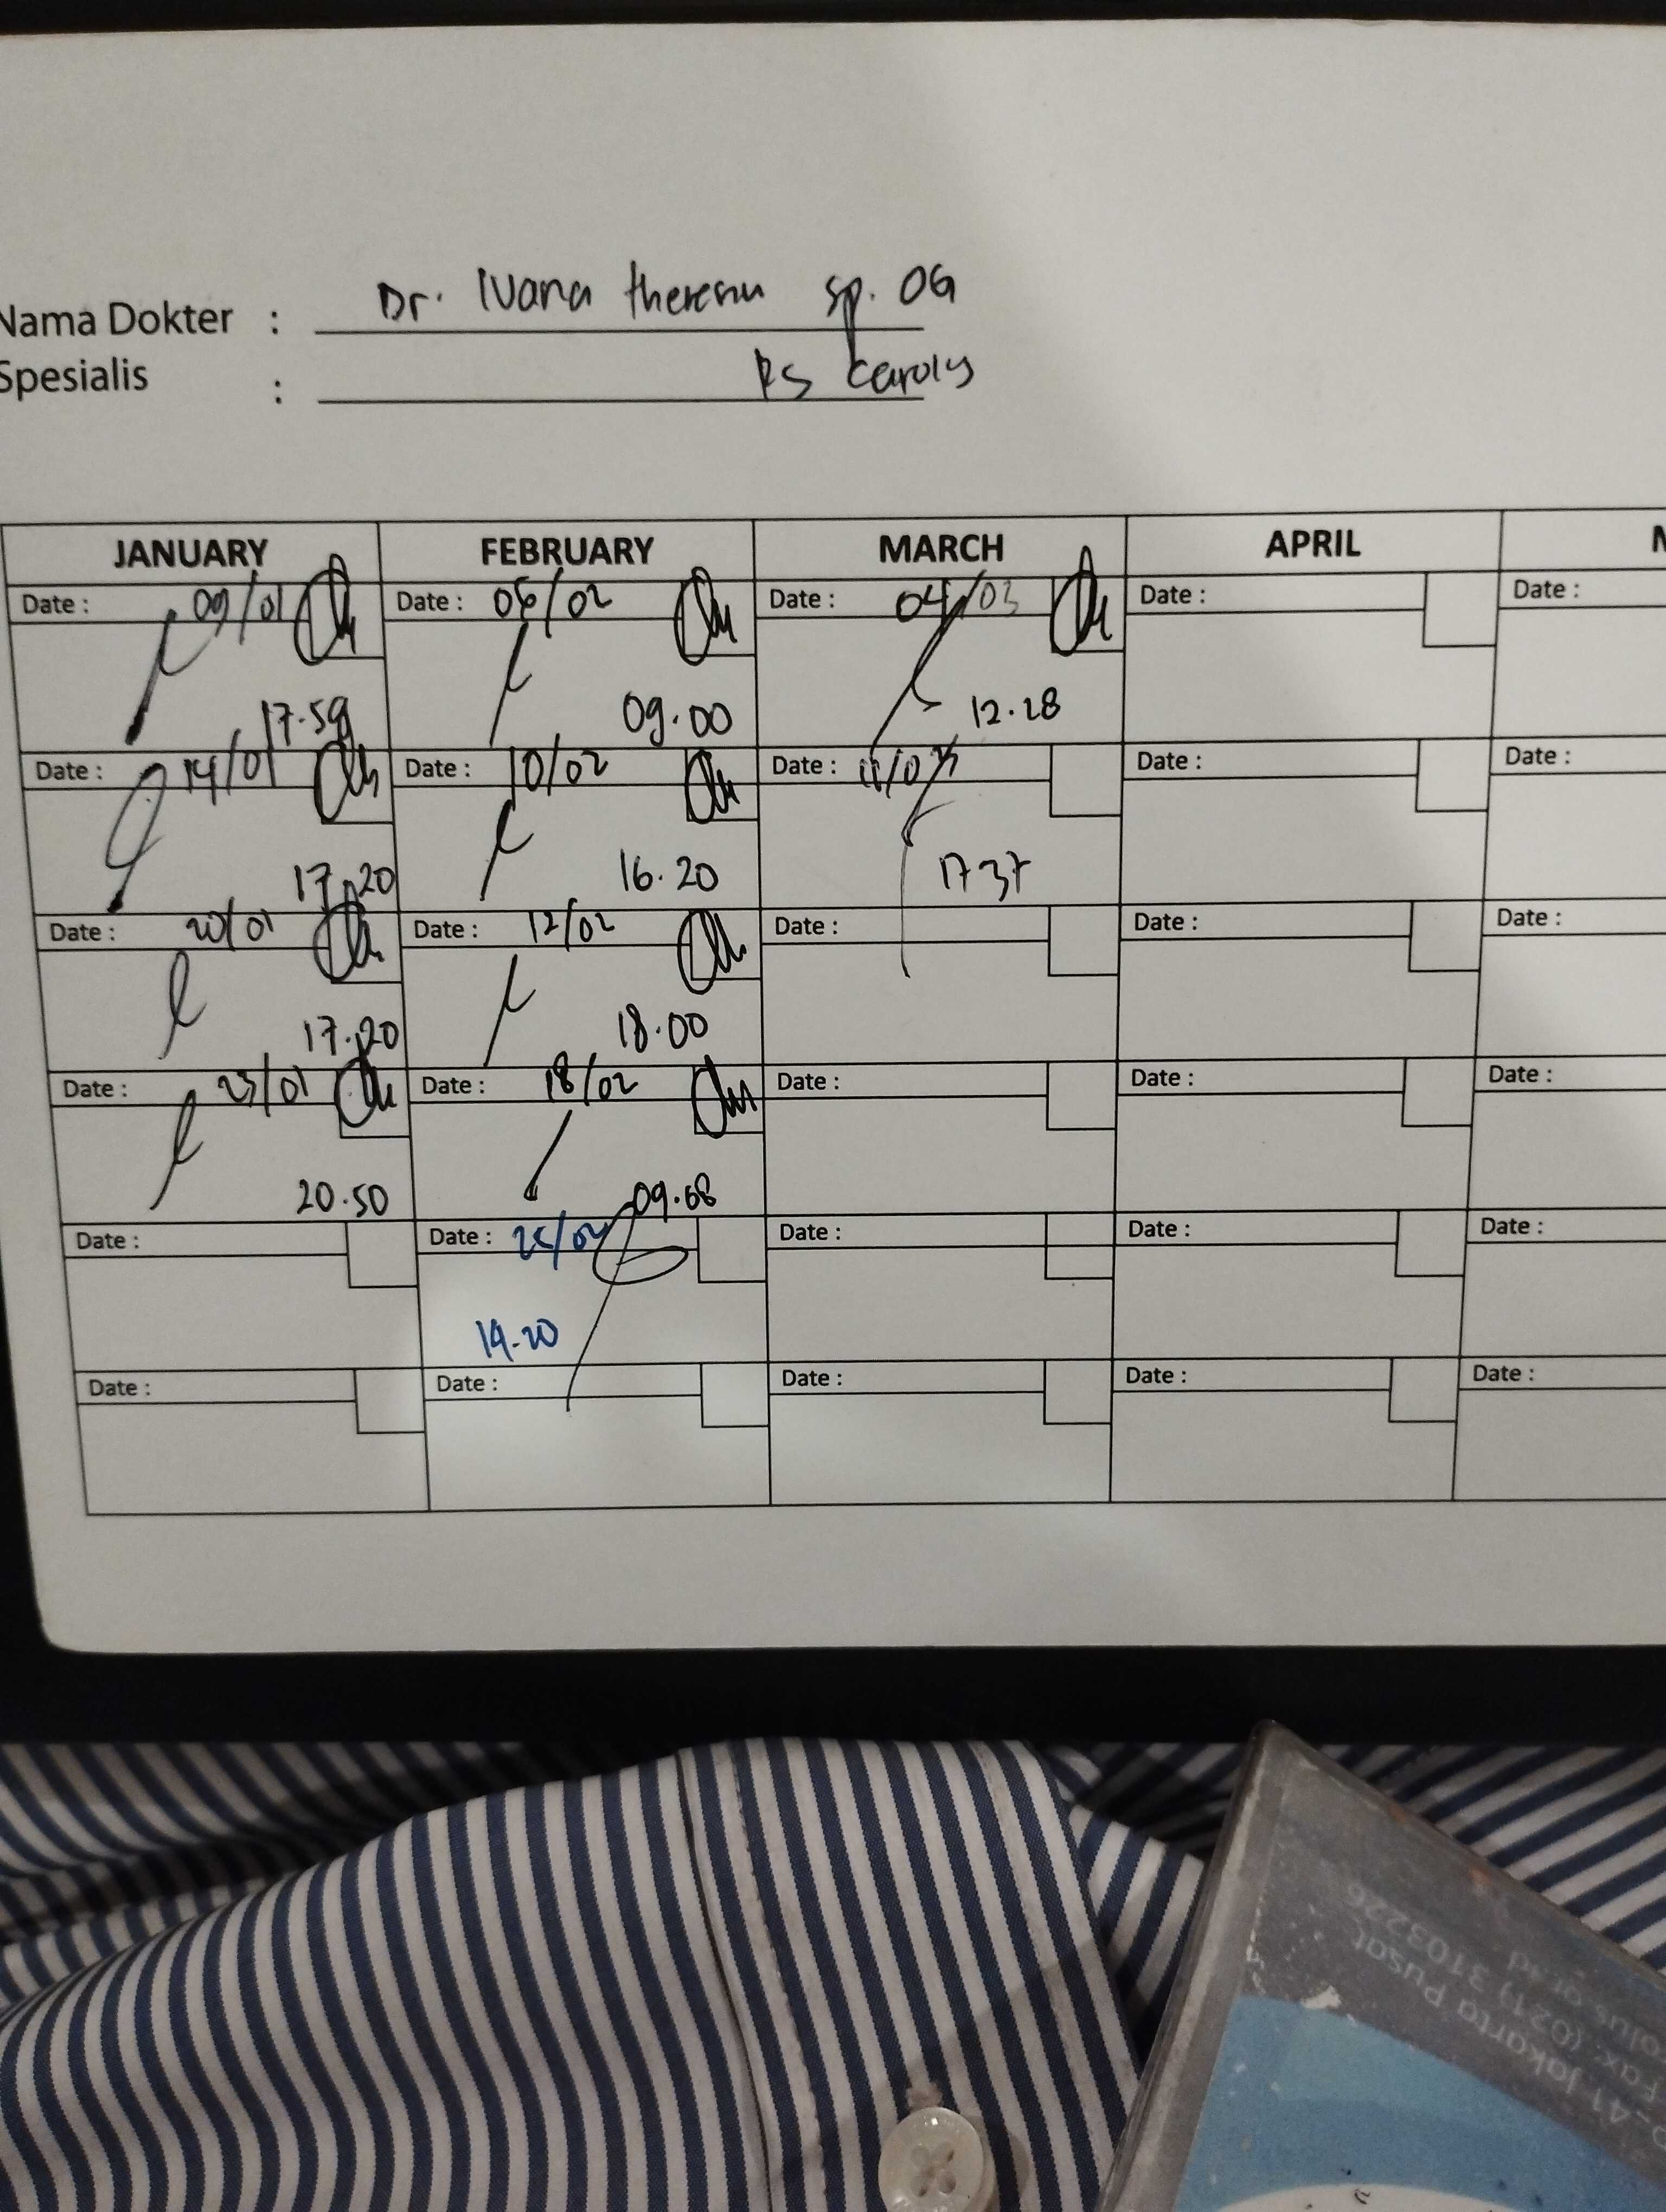 Nama Dokter : Dr. Ivana theresia sp. OG
Spesialis : RS Carolus
JANUARY FEBRUARY MARCH APRIL
Date : 09/01 Date : 06/02 Date : 04/03 Date : Date :
17.59 09.00 12.28
Date : 14/01 Date : 10/02 Date : 11/03 Date : Date :
17.20 16.20 17 37
Date : 20/01 Date : 12/02 Date : Date : Date :
17.20 18.00
Date : 23/01 Date : 18/02 Date : Date : Date :
20.50 09.08
Date : Date : 25/02 Date : Date : Date :
19.20
Date : Date : Date : Date : Date :
41 Jakarta Pusat
Fax: (021) 3103226